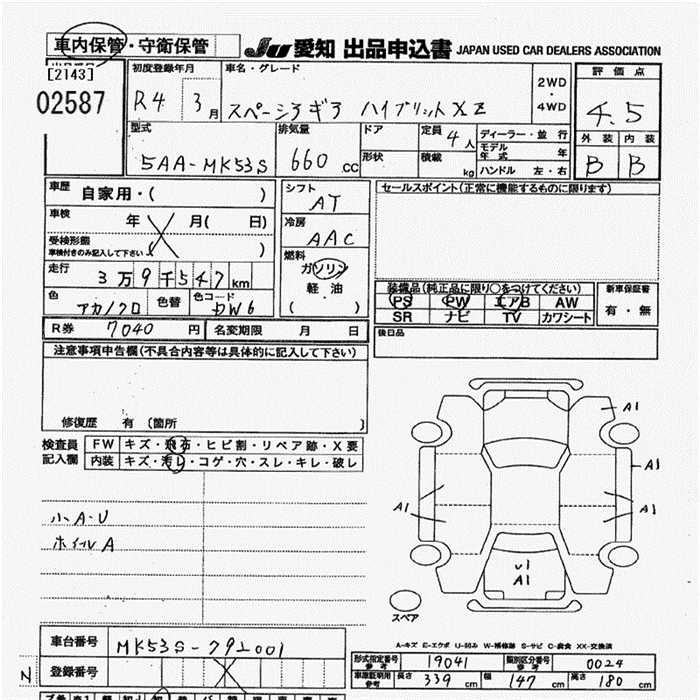 車内保管・守衛保管 JU 愛知 出品申込書 JAPAN USED CAR DEALERS ASSOCIATION
出品番号 初度登録年月 車名・グレード 2WD・4WD 評価点
[2143]
02587 R4 3月 スペーシアギア ハイブリットXZ 4.5
型式 排気量 ドア 定員 4人 ディーラー・並行 外装 内装
5AA-MK53S 660cc 形状 積載 kg モデル年式 年 B B
ハンドル 左・右
車歴 自家用・( ) シフト セールスポイント(正常に機能するものに限ります)
AT
車検 年 月( 日) 冷房
受検形態 AAC
車検付きのみ記入して下さい ( ) 燃料
走行 3万9千547km ガソリン
軽油
( )
装備品(純正品に限り○をつけてください) 新車保証書
色 アカ/クロ 色替 色コード PS PW エアB AW 有・無
SR ナビ TV カワシート
R券 7040円 名変期限 月 日 後日品
注意事項申告欄(不具合内容等は具体的に記入して下さい)
修復歴 有 (箇所 )
検査員 FW キズ・飛石・ヒビ割・リペア跡・X要
記入欄 内装 キズ・汚レ・コゲ・穴・スレ・キレ・破レ
小A・U
ホイルA
A1
A1
A1 A1
U1
A1
スペア
A-キズ E-エクボ U-凹み W-補修跡 S-サビ C-腐食 XX-交換済
車台番号 MK53S-792001
登録番号
形式指定番号 参考 19041 類別区分番号 参考 0024
車庫証明用 参考 長さ 339cm 幅 147cm 高さ 180cm
N